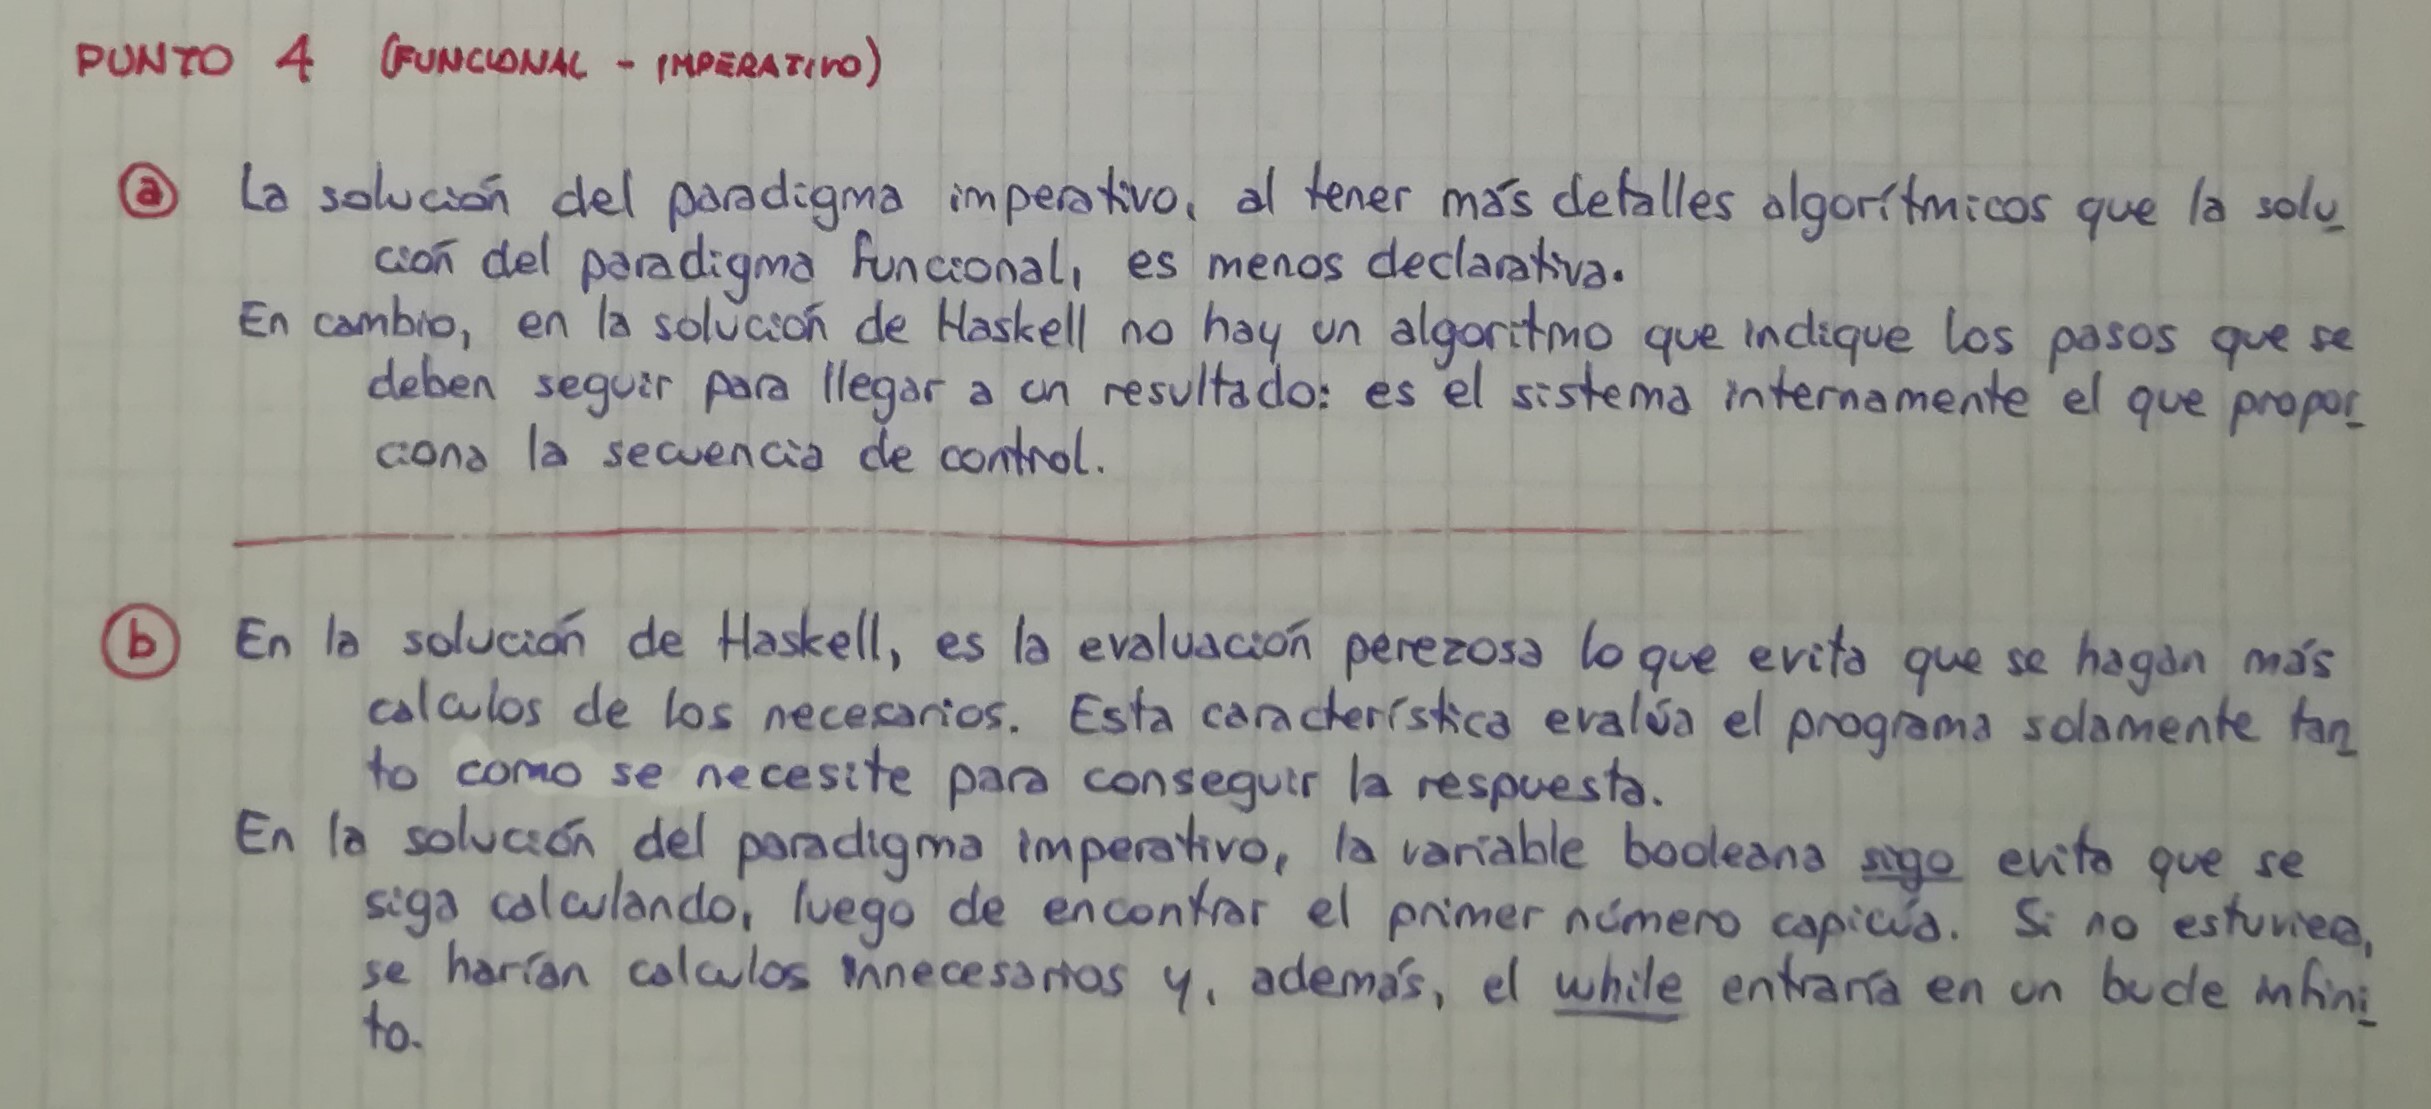 PUNTO 4 (FUNCIONAL - IMPERATIVO)
a La solución del paradigma imperativo, al tener más detalles algorítmicos que la solu_
ción del paradigma funcional, es menos declarativa.
En cambio, en la solución de Haskell no hay un algoritmo que indique los pasos que se
deben seguir para llegar a un resultado: es el sistema internamente el que propor_
ciona la secuencia de control.
b En la solución de Haskell, es la evaluación perezosa lo que evita que se hagan más
calculos de los necesarios. Esta característica evalúa el programa solamente tan_
to como se necesite para conseguir la respuesta.
En la solución del paradigma imperativo, la variable booleana sigo evita que se
siga calculando, luego de encontrar el primer número capicúa. Si no estuviera,
se harían calculos innecesarios y, además, el while entraría en un bucle infini_
to.